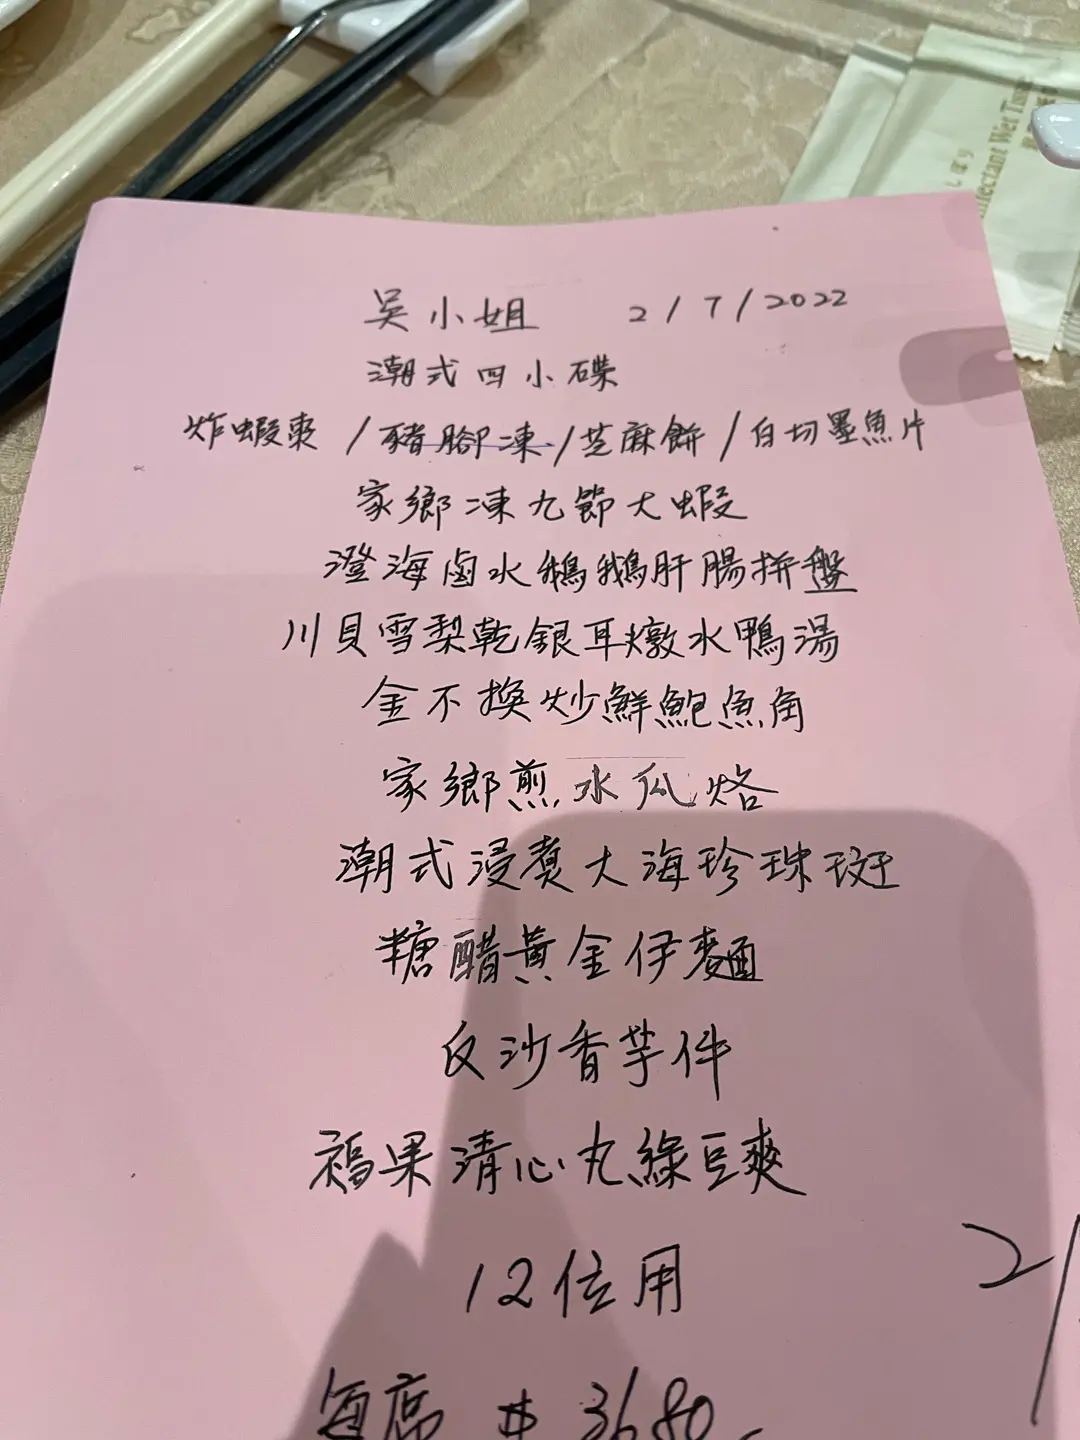 吳小姐 2/7/2022
潮式四小碟
炸蝦棗/豬腳凍/芝麻餅/白切墨魚片
家鄉凍九節大蝦
澄海鹵水鵝鵝肝腸拼盤
川貝雪梨乾銀耳燉水鴨湯
金不換炒鮮鮑魚角
家鄉煎水瓜烙
潮式浸煮大海珍珠斑
糖醋黃金伊麵
反沙香芋件
福果清心丸綠豆爽
12位用
每席 $3680
Wet Tissue